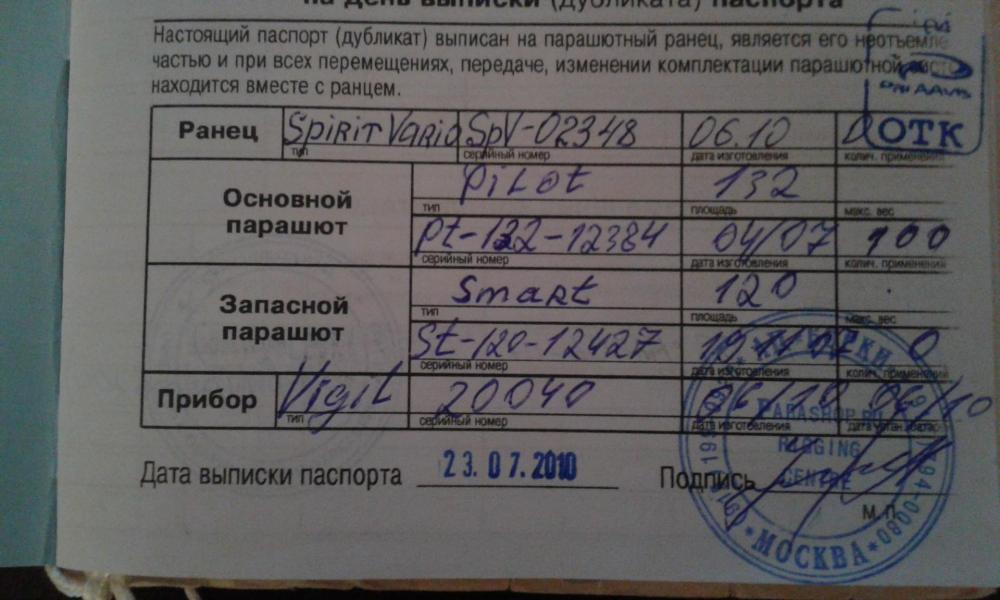 на день выписки (дубликата) паспорта
Настоящий паспорт (дубликат) выписан на парашютный ранец, является его неотъемле
частью и при всех перемещениях, передаче, изменении комплектации парашютной
находится вместе с ранцем.
Ранец Spirit Vario SpV-02348 06.10 0
тип серийный номер дата изготовления колич. применений
ОТК
Основной парашют Pilot 132
тип площадь макс. вес
Pt-132-12384 04/07 100
серийный номер дата изготовления колич. применений
Запасной парашют Smart 120
тип площадь макс. вес
St-120-12427 0
серийный номер дата изготовления колич. применений
Прибор Vigil 20040 06/10 06/10
тип серийный номер дата изготовления дата устан. батар.
PARASHOP.RU
RIGGING
CENTRE
Дата выписки паспорта 23.07.2010 Подпись
М.П.
*МОСКВА*